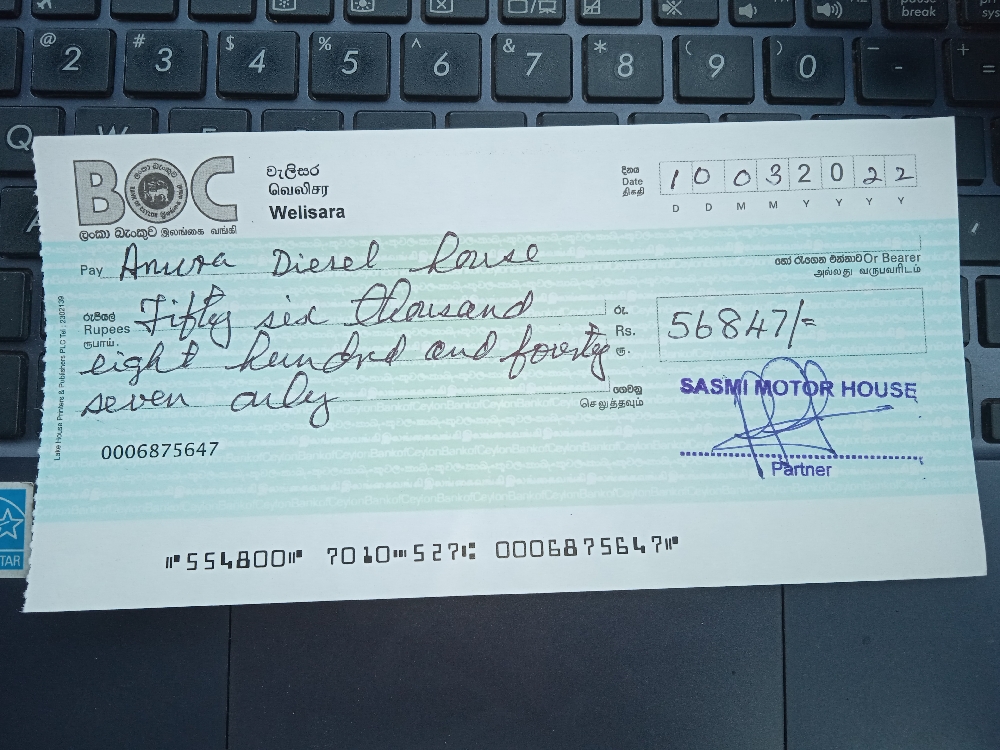 @ # $ % ^ & * ( ) _ +
2 3 4 5 6 7 8 9 0 - =
break
Q W E
BOC
ලංකා බැංකුව இலங்கை வங்கி
වැලිසර
வெலிசர
Welisara
දිනය
Date
திகதி
1 0 0 3 2 0 2 2
D D M M Y Y Y Y
Pay Anura Diesel house
හෝ රැගෙන එන්නාට Or Bearer
அல்லது வருபவரிடம்
රුපියල්
Rupees
ரூபாய்.
Fifty six thousand
eight hundrd and fourty
seven only
රු.
Rs.
ரூ.
56847/=
ගෙවනු
செலுத்தவும்
Lake House Printers & Publishers PLC Tel : 2302139
0006875647
SASMI MOTOR HOUSE
Partner
⑈554800⑈ 7010⑉527⑆ 0006875647⑈
TAR